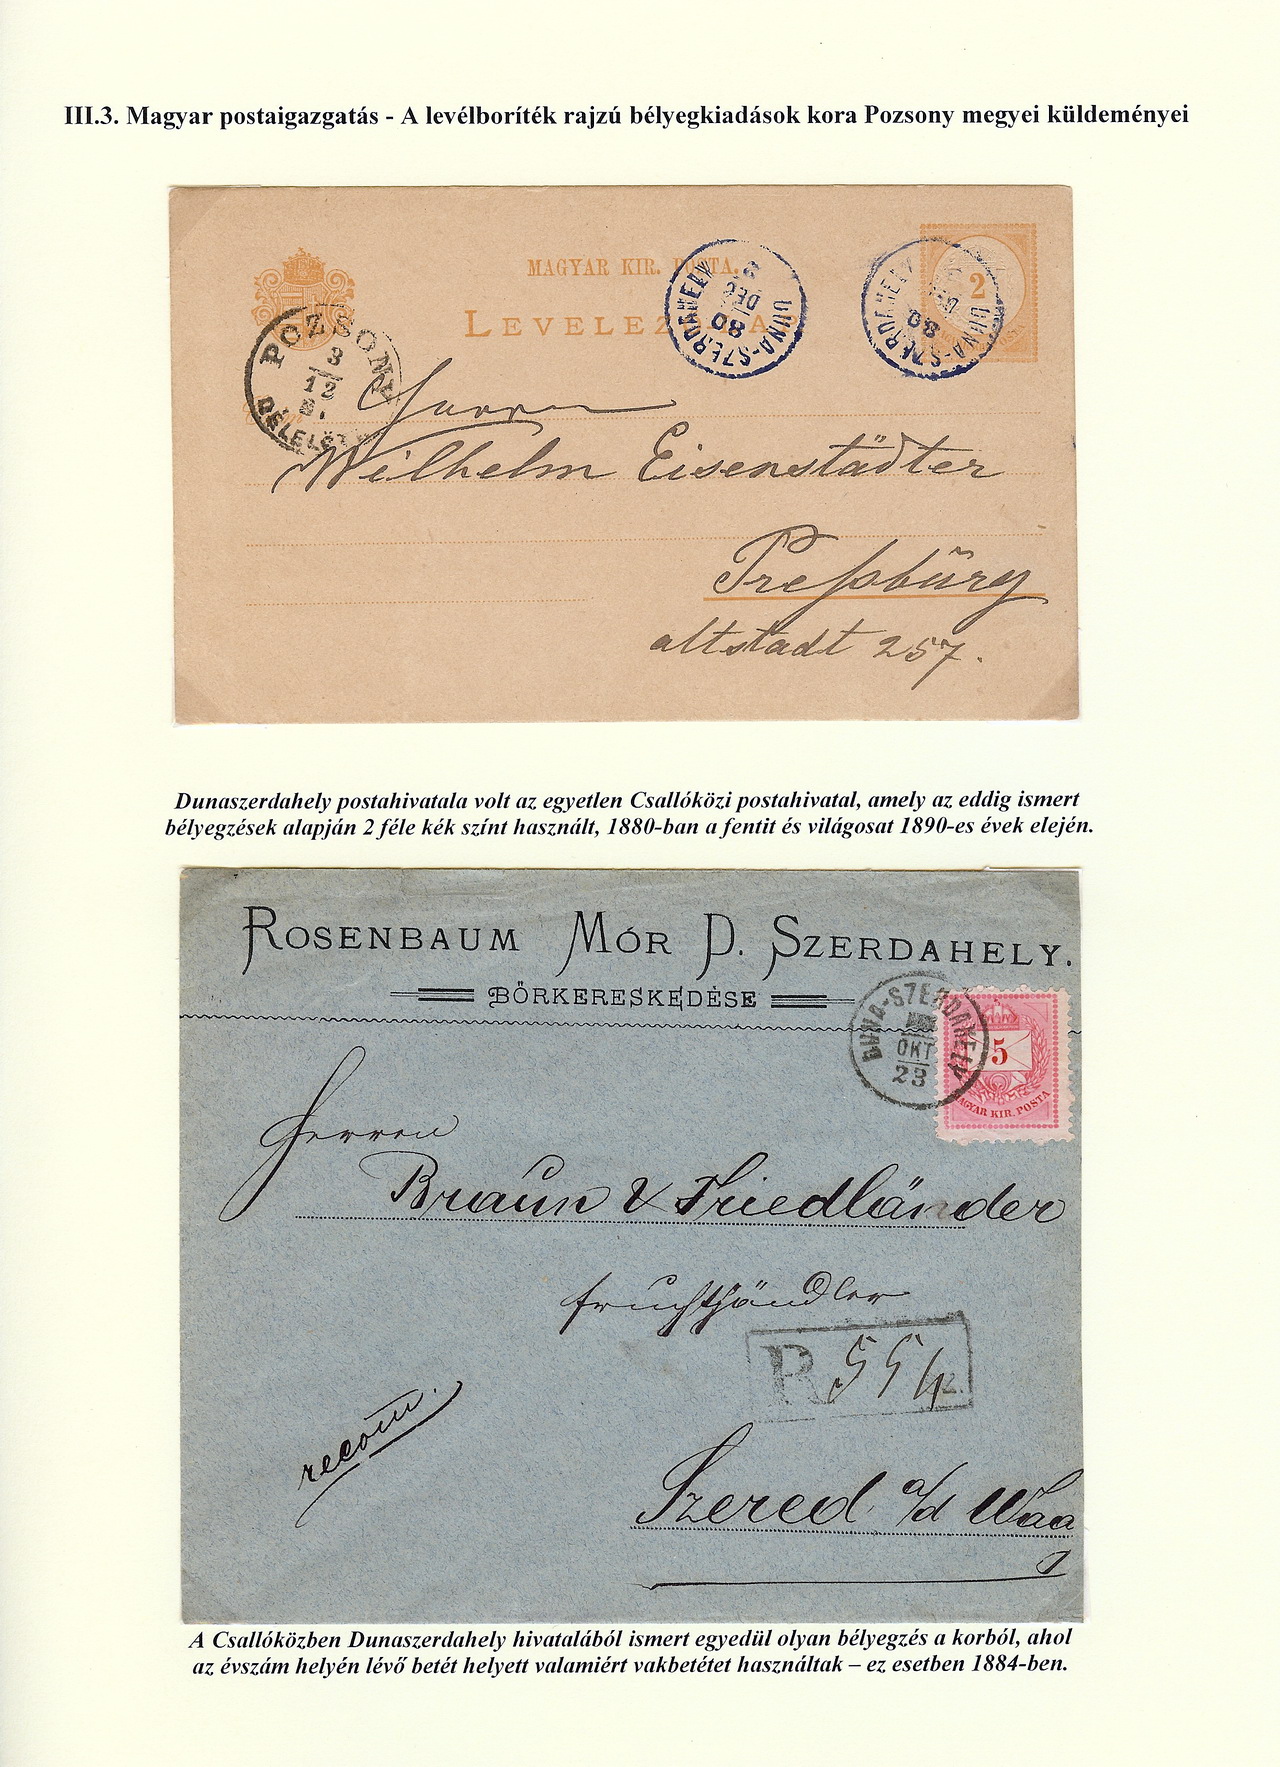 III.3. Magyar postaigazgatás - A levélboríték rajzú bélyegkiadások kora Pozsony megyei küldeményei
MAGYAR KIR. POSTA.
LEVELEZ
2
DUNA-SZERDAHELY
DEC
80
DUNA-SZERDAHELY
80
POZSONY
3
12
Herrn
Wilhelm Eisenstädter
Preßbürg
altstadt 257.
Dunaszerdahely postahivatala volt az egyetlen Csallóközi postahivatal, amely az eddig ismert
bélyegzések alapján 2 féle kék színt használt, 1880-ban a fentit és világosat 1890-es évek elején.
ROSENBAUM MÓR D. SZERDAHELY.
BŐRKERESKEDÉSE
DUNA-SZERDAHELY
OKT
23
5
MAGYAR KIR. POSTA
Herren
Braun & Friedländer
fruchthändler
R 554
recom.
Szered a/d Waa
g
A Csallóközben Dunaszerdahely hivatalából ismert egyedül olyan bélyegzés a korból, ahol
az évszám helyén lévő betét helyett valamiért vakbetétet használtak – ez esetben 1884-ben.